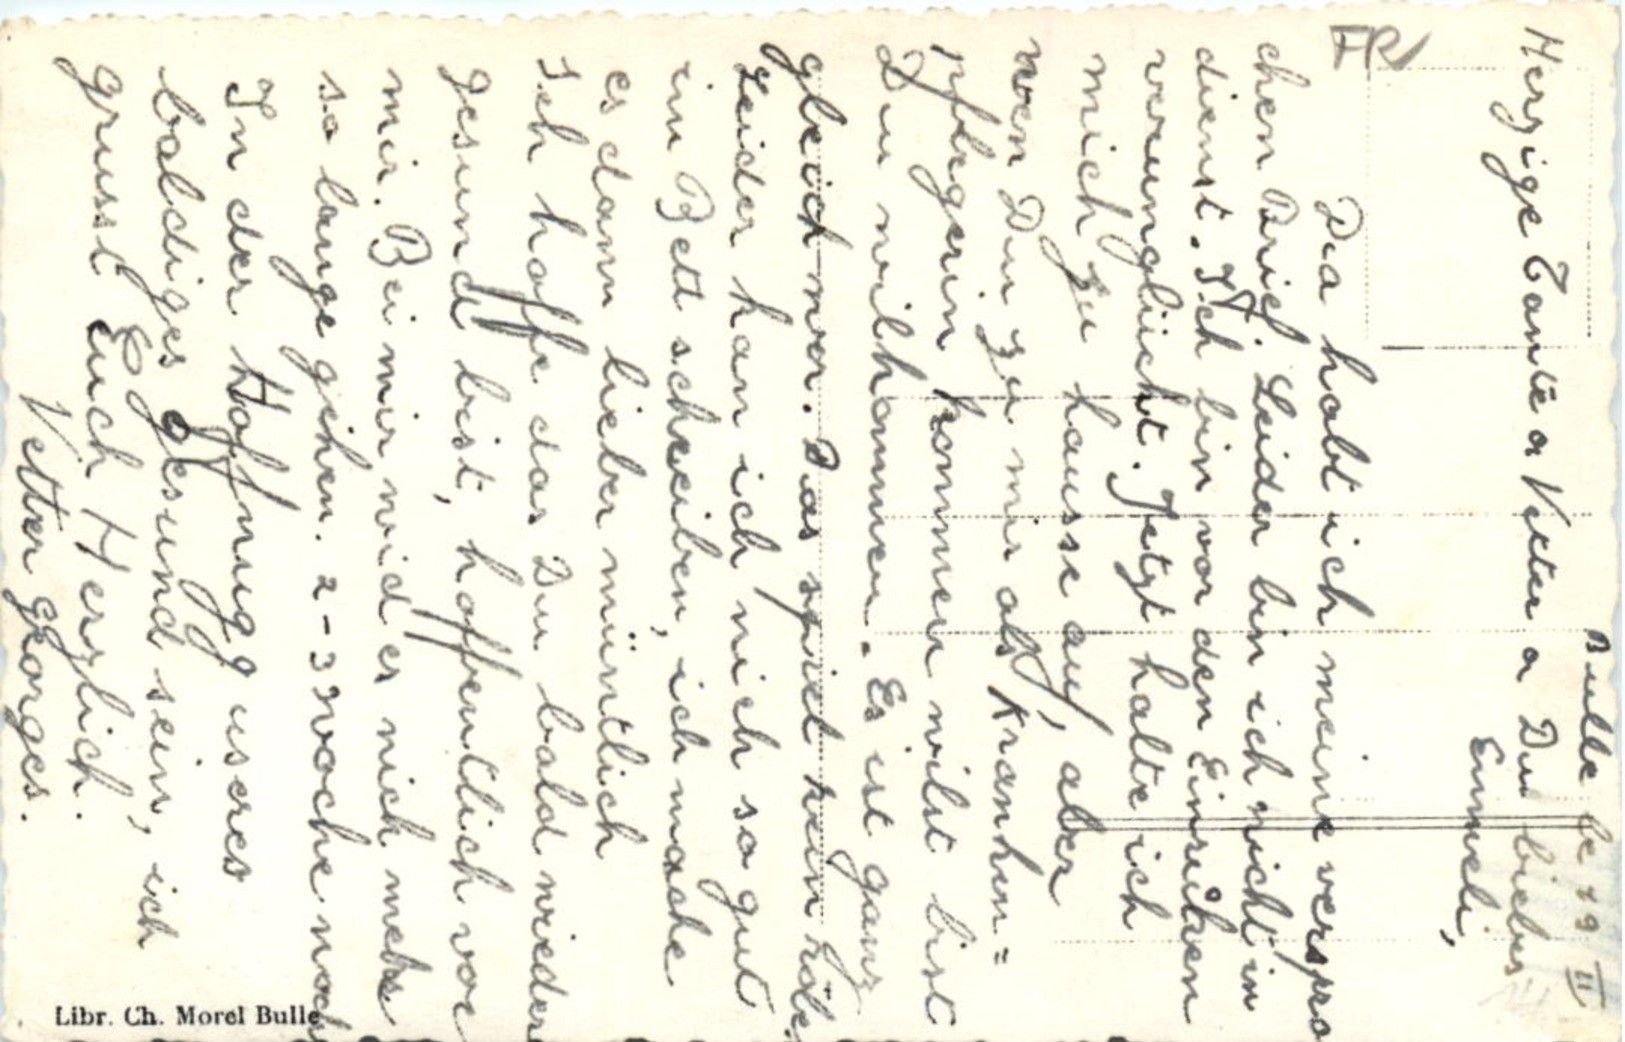 Bulle le 19 II
Herzige Tante u Vetter u Du liebes
Emmeli,
Da habt ich meine verspro
chen Brief. Leider bin ich nicht in
dienst. Ich bin vor den Einrüken
verunglückt. Jetzt halte ich
mich zu hausse auf, aber
wen Du zu mir als Kranken=
pflegerin kommen wilst bist
Du wilkommen. Es ist ganz
gleich wer. Das spielt kein role.
Leider kan ich nich so gut
im Bett schreiben, ich mache
es dann lieber müntlich
Ich hoffe das Du bald wieder
gesund bist, hoffentlich vor
mir. Bei mir wird es nich mehr
so lange gehen. 2-3 woche noch
In der Hoffnug useres
baldiges Gesund sein, ich
grusst Euch Herzlich.
Vetter Georges.
FR
Libr. Ch. Morel Bulle